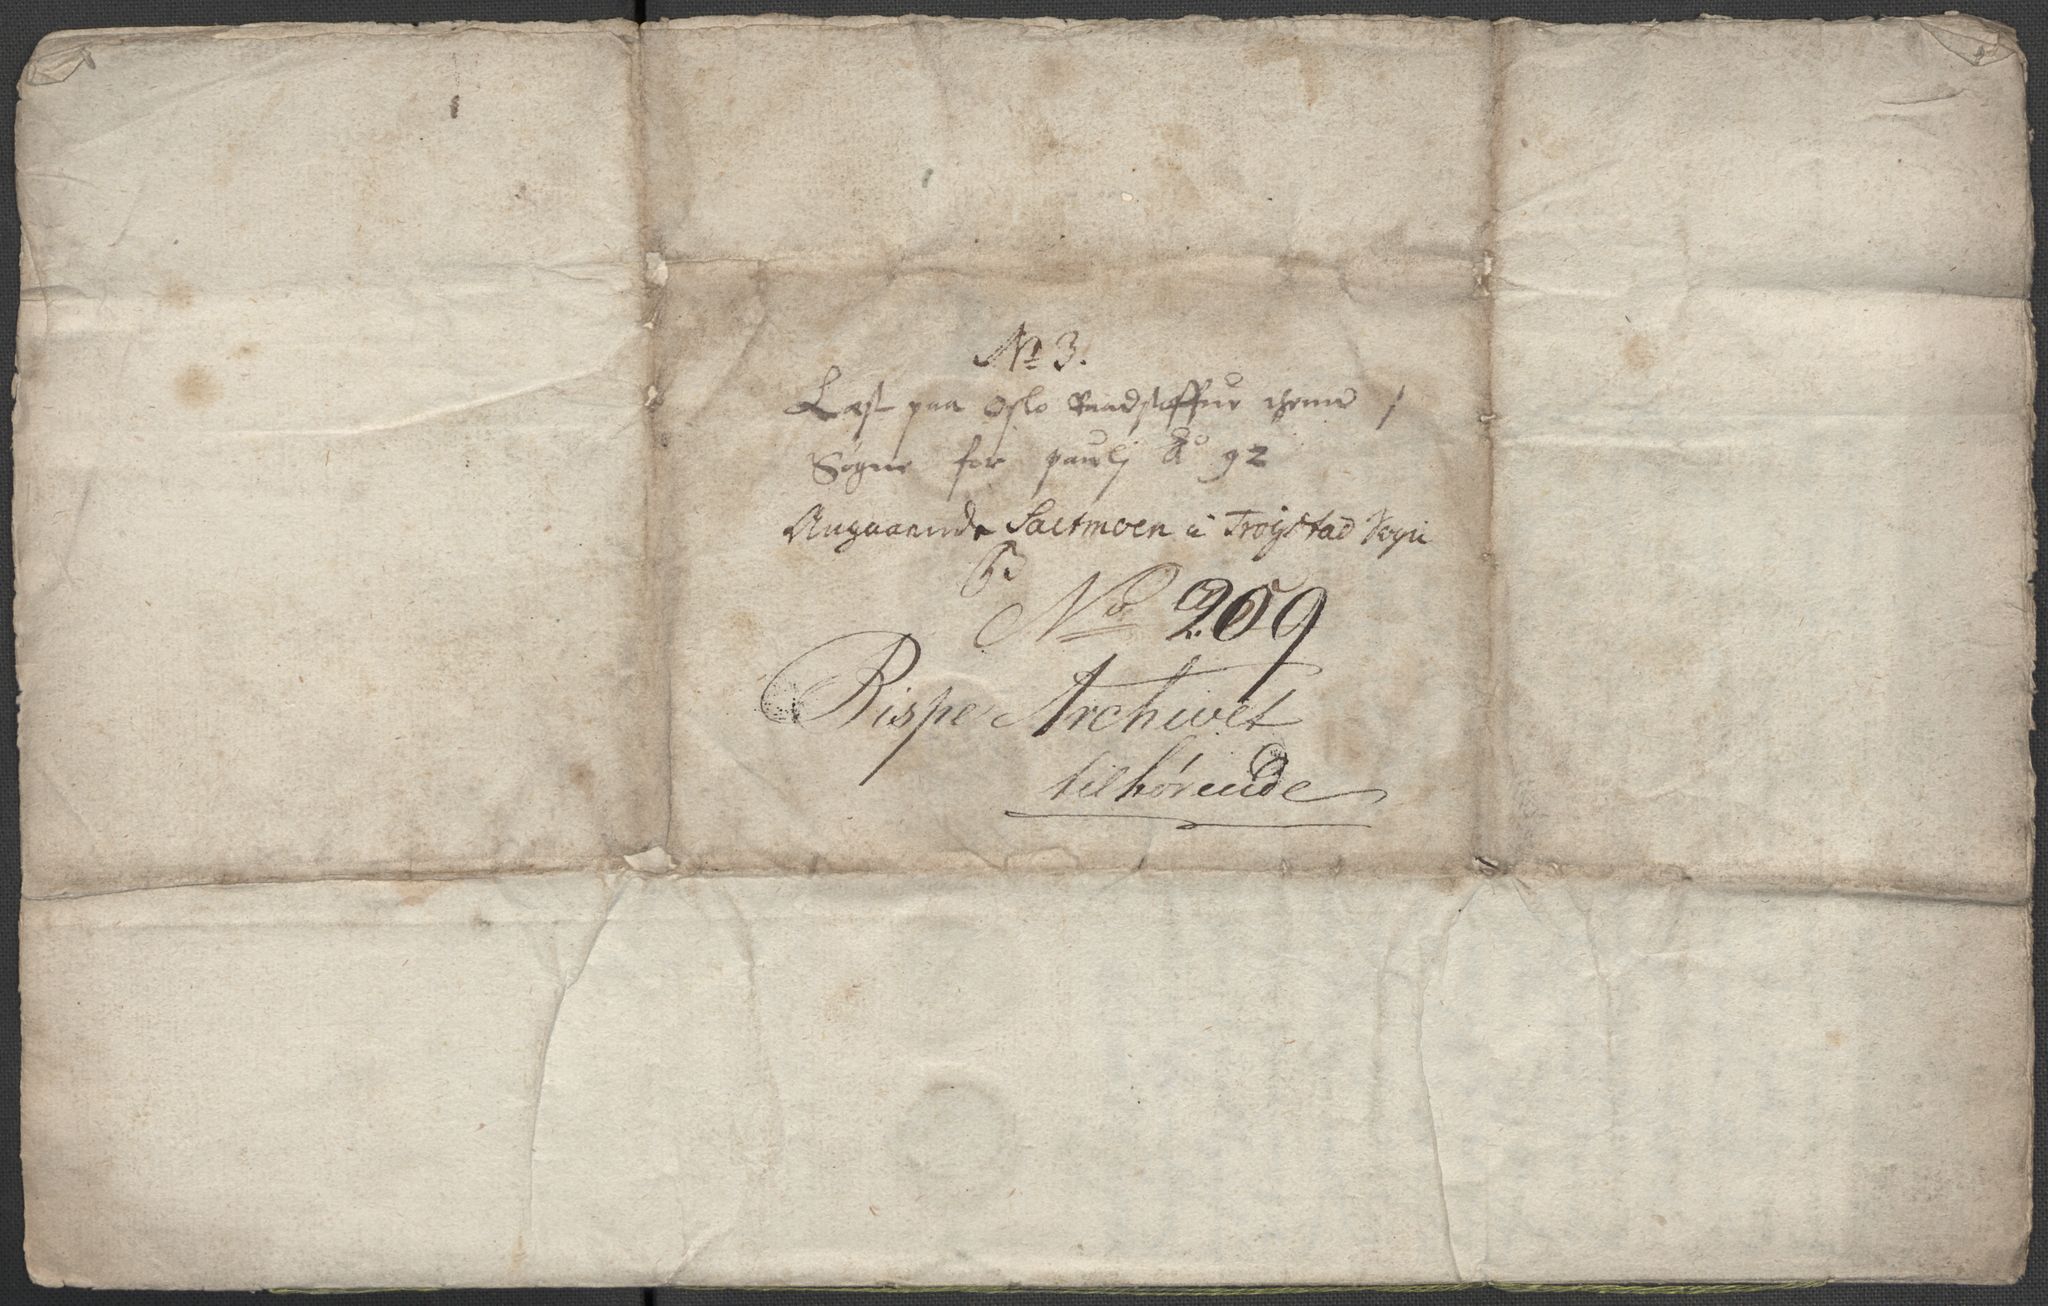 No 3.
Læst paa Oslo Raadstoffue
Søgne for paulj Ao 92
Angaaende Saetmoen i Trøgstad Sogn
No 209
Bispe Archivet
tilhørende